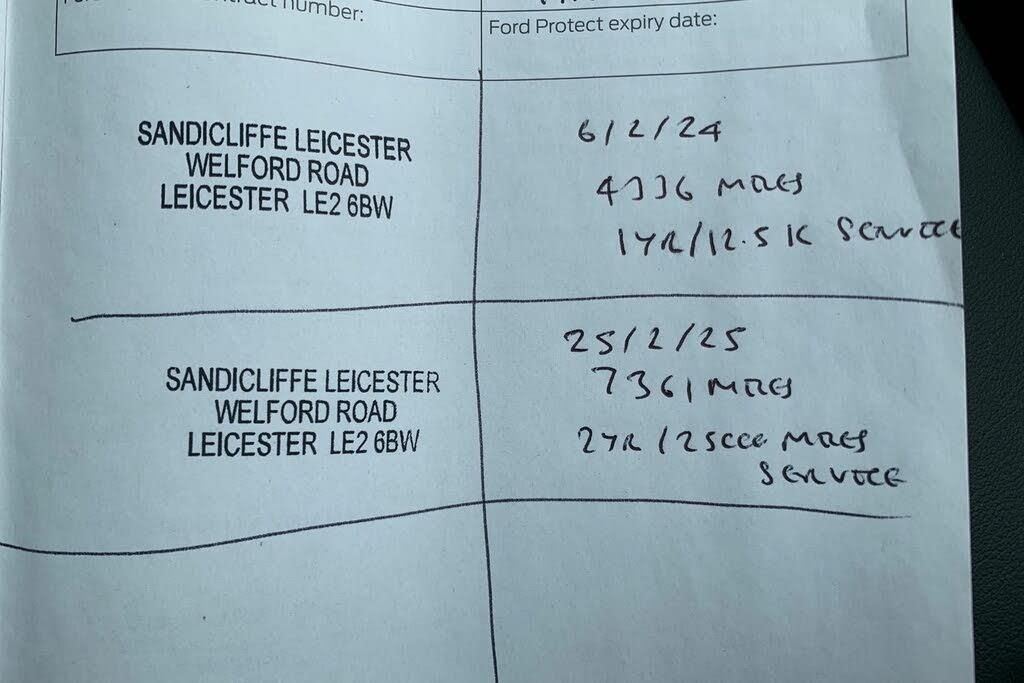 number:
Ford Protect expiry date:
SANDICLIFFE LEICESTER
WELFORD ROAD
LEICESTER LE2 6BW
6/2/24
4336 MILES
1YR/12.5K SERVICE
SANDICLIFFE LEICESTER
WELFORD ROAD
LEICESTER LE2 6BW
25/2/25
7361 MILES
2YR/25000 MILES
SERVICE